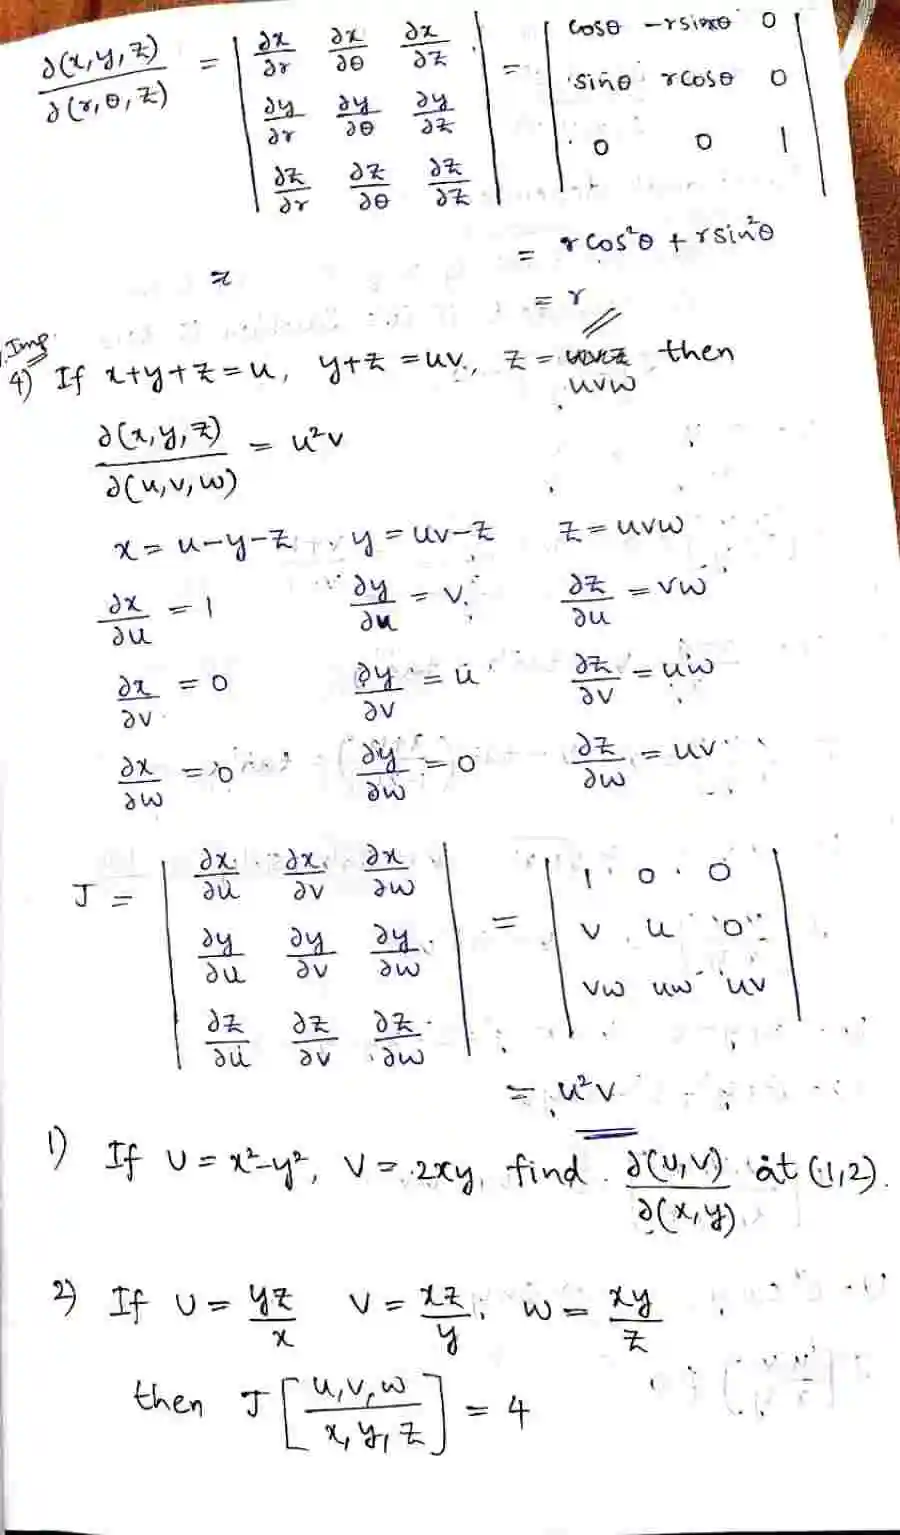 ∂(x,y,z)/∂(r,θ,z) = | ∂x/∂r ∂x/∂θ ∂x/∂z | = | cosθ -rsinθ 0 |
| ∂y/∂r ∂y/∂θ ∂y/∂z | | sinθ rcosθ 0 |
| ∂z/∂r ∂z/∂θ ∂z/∂z | | 0 0 1 |
= rcos²θ + rsin²θ
= r
Imp.
4) If x+y+z = u, y+z = uv, z = uvw then
∂(x,y,z)/∂(u,v,w) = u²v
x = u-y-z y = uv-z z = uvw
∂x/∂u = 1 ∂y/∂u = v ∂z/∂u = vw
∂x/∂v = 0 ∂y/∂v = u ∂z/∂v = uw
∂x/∂w = 0 ∂y/∂w = 0 ∂z/∂w = uv
J = | ∂x/∂u ∂x/∂v ∂x/∂w | = | 1 0 0 |
| ∂y/∂u ∂y/∂v ∂y/∂w | | v u 0 |
| ∂z/∂u ∂z/∂v ∂z/∂w | | vw uw uv |
= u²v
1) If U = x²-y², V = 2xy, find ∂(u,v)/∂(x,y) at (1,2).
2) If U = yz/x V = xz/y, W = xy/z
then J[u,v,w/x,y,z] = 4